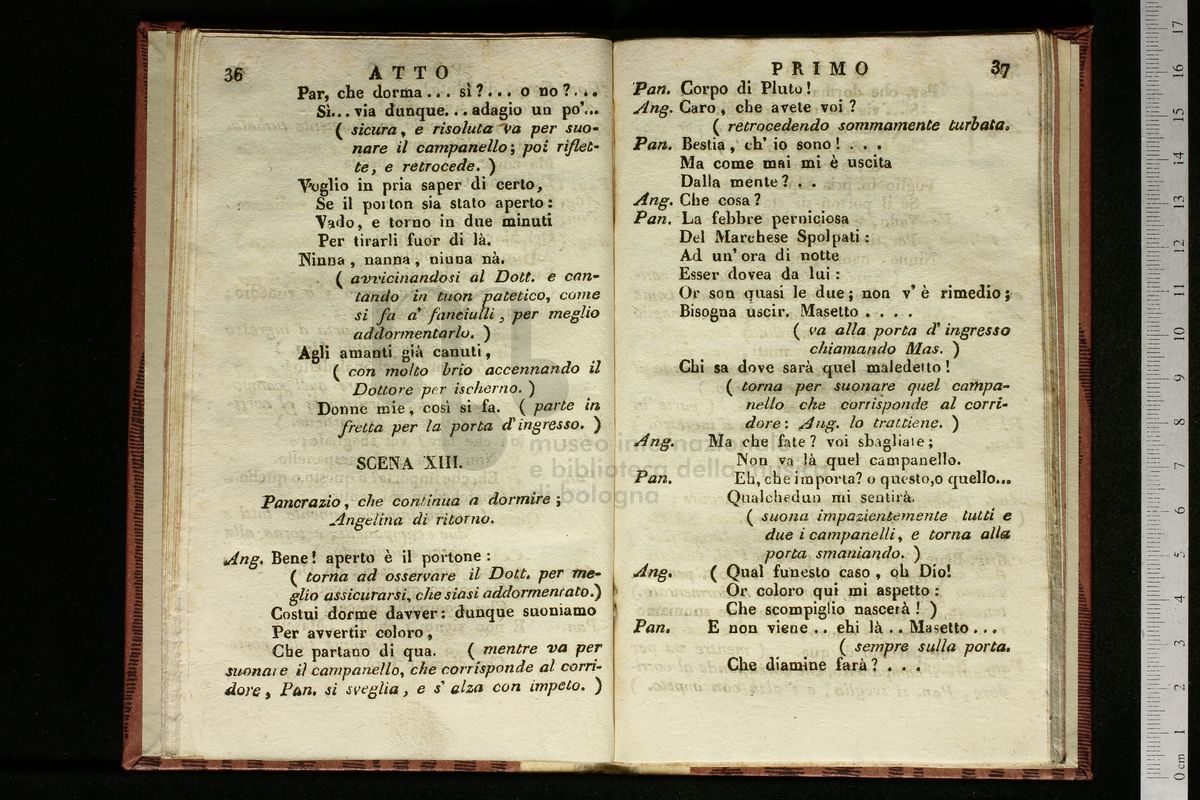 36
ATTO
Par, che dorma... sì?... o no?...
Sì... via dunque... adagio un po'...
( sicura, e risoluta va per suo-
nare il campanello; poi riflet-
te, e retrocede. )
Voglio in pria saper di certo,
Se il porton sia stato aperto:
Vado, e torno in due minuti
Per tirarli fuor di là.
Ninna, nanna, ninna nà.
( avvicinandosi al Dott. e can-
tando in tuon patetico, come
si fa a' fanciulli, per meglio
addormentarlo. )
Agli amanti già canuti,
( con molto brio accennando il
Dottore per ischerno. )
Donne mie, così si fa. ( parte in
fretta per la porta d'ingresso. )
SCENA XIII.
Pancrazio, che continua a dormire;
Angelina di ritorno.
Ang. Bene! aperto è il portone:
( torna ad osservare il Dott. per me-
glio assicurarsi, che siasi addormentato.)
Costui dorme davver: dunque suoniamo
Per avvertir coloro,
Che partano di qua. ( mentre va per
suonare il campanello, che corrisponde al corri-
dore, Pan. si sveglia, e s'alza con impeto. )
PRIMO
37
Pan. Corpo di Pluto!
Ang. Caro, che avete voi?
( retrocedendo sommamente turbata.
Pan. Bestia, ch'io sono! . . .
Ma come mai mi è uscita
Dalla mente? . .
Ang. Che cosa?
Pan. La febbre perniciosa
Del Marchese Spolpati:
Ad un'ora di notte
Esser dovea da lui:
Or son quasi le due; non v'è rimedio;
Bisogna uscir. Masetto . . . .
( va alla porta d'ingresso
chiamando Mas. )
Chi sa dove sarà quel maledetto!
( torna per suonare quel campa-
nello che corrisponde al corri-
dore: Ang. lo trattiene. )
Ang. Ma che fate? voi sbagliate;
Non va là quel campanello.
Pan. Eh, che importa? o questo, o quello...
Qualchedun mi sentirà.
( suona impazientemente tutti e
due i campanelli, e torna alla
porta smaniando. )
Ang. ( Qual funesto caso, oh Dio!
Or coloro qui mi aspetto:
Che scompiglio nascerà! )
Pan. E non viene .. ehi là .. Masetto...
( sempre sulla porta.
Che diamine farà? . . .
museo internazionale
e biblioteca della musica
di bologna
0 cm 1 2 3 4 5 6 7 8 9 10 11 12 13 14 15 16 17